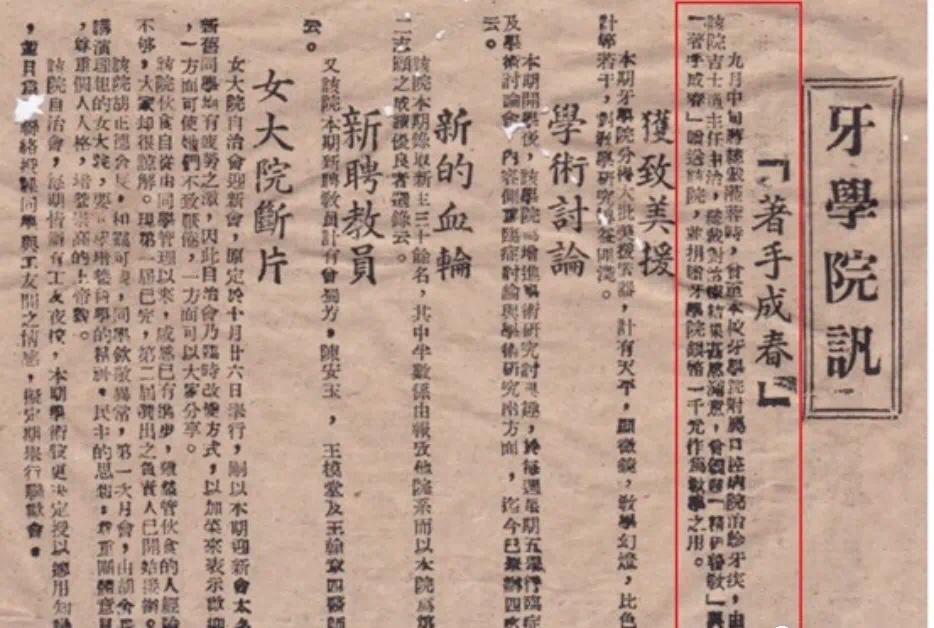 牙學院訊
「著手成春」
九月中旬蔣總裁蒞蓉時，曾至本校牙學院附屬口腔病院治齡牙疾，由
該院吉士道主任主治，總裁對治療結果甚感滿意，曾頒賜「精研番敎」與
「著手成春」贈送該院，並捐贈牙學院銀幣一千元作爲敎學之用。
獲致美援
本期牙學院分得大批美援器，計有天平，顯微鏡，敎學幻燈，比色
計等若干，對敎學研究裨益匪淺。
學術討論
本期開學後，該學院爲增進學術研究討興趣，於每週星期五舉行臨症
及學術討論會，內容側重臨症討論與學術研究兩方面，迄今已舉辦四次
云。
新的血輪
該院本期錄取新生三十餘名，其中半數係由報攷他院系而以本院爲第
二志願之成績優良者選錄云。
新聘敎員
又該院本期新聘敎員計有曾蜀芳，陳安玉，王模堂及王翰章四醫師
云。
女大院斷片
女大院自治會迎新會，原定於十月廿六日舉行，嗣以本期迎新會太多
新舊同學均有疲勞之意，因此自治會乃臨時改變方式，以加菜來表示歡迎
，一方面可使她們不致厭倦，一方面可以大家分享。
該院伙食自從由同學管理以來，成績已有進步，雖然管伙食的人經驗
不够，大家却很諒解。現第一屆已完，第二屆選出之負責人已開始接辦。
該院胡正德舍長，和藹可親，同學欽敬異常，第一次月會，由胡舍長
講演理想的女大院，要 培養 學的精神。民主的思想，尊重團體意見
，尊重個人人格，培養崇高的上帝觀。
該院自治會，每期情 有工友夜校，本期學術股更决定授以應用知識
，並且爲 聯絡 同學與工友間之情感，擬定期舉行聯歡會。